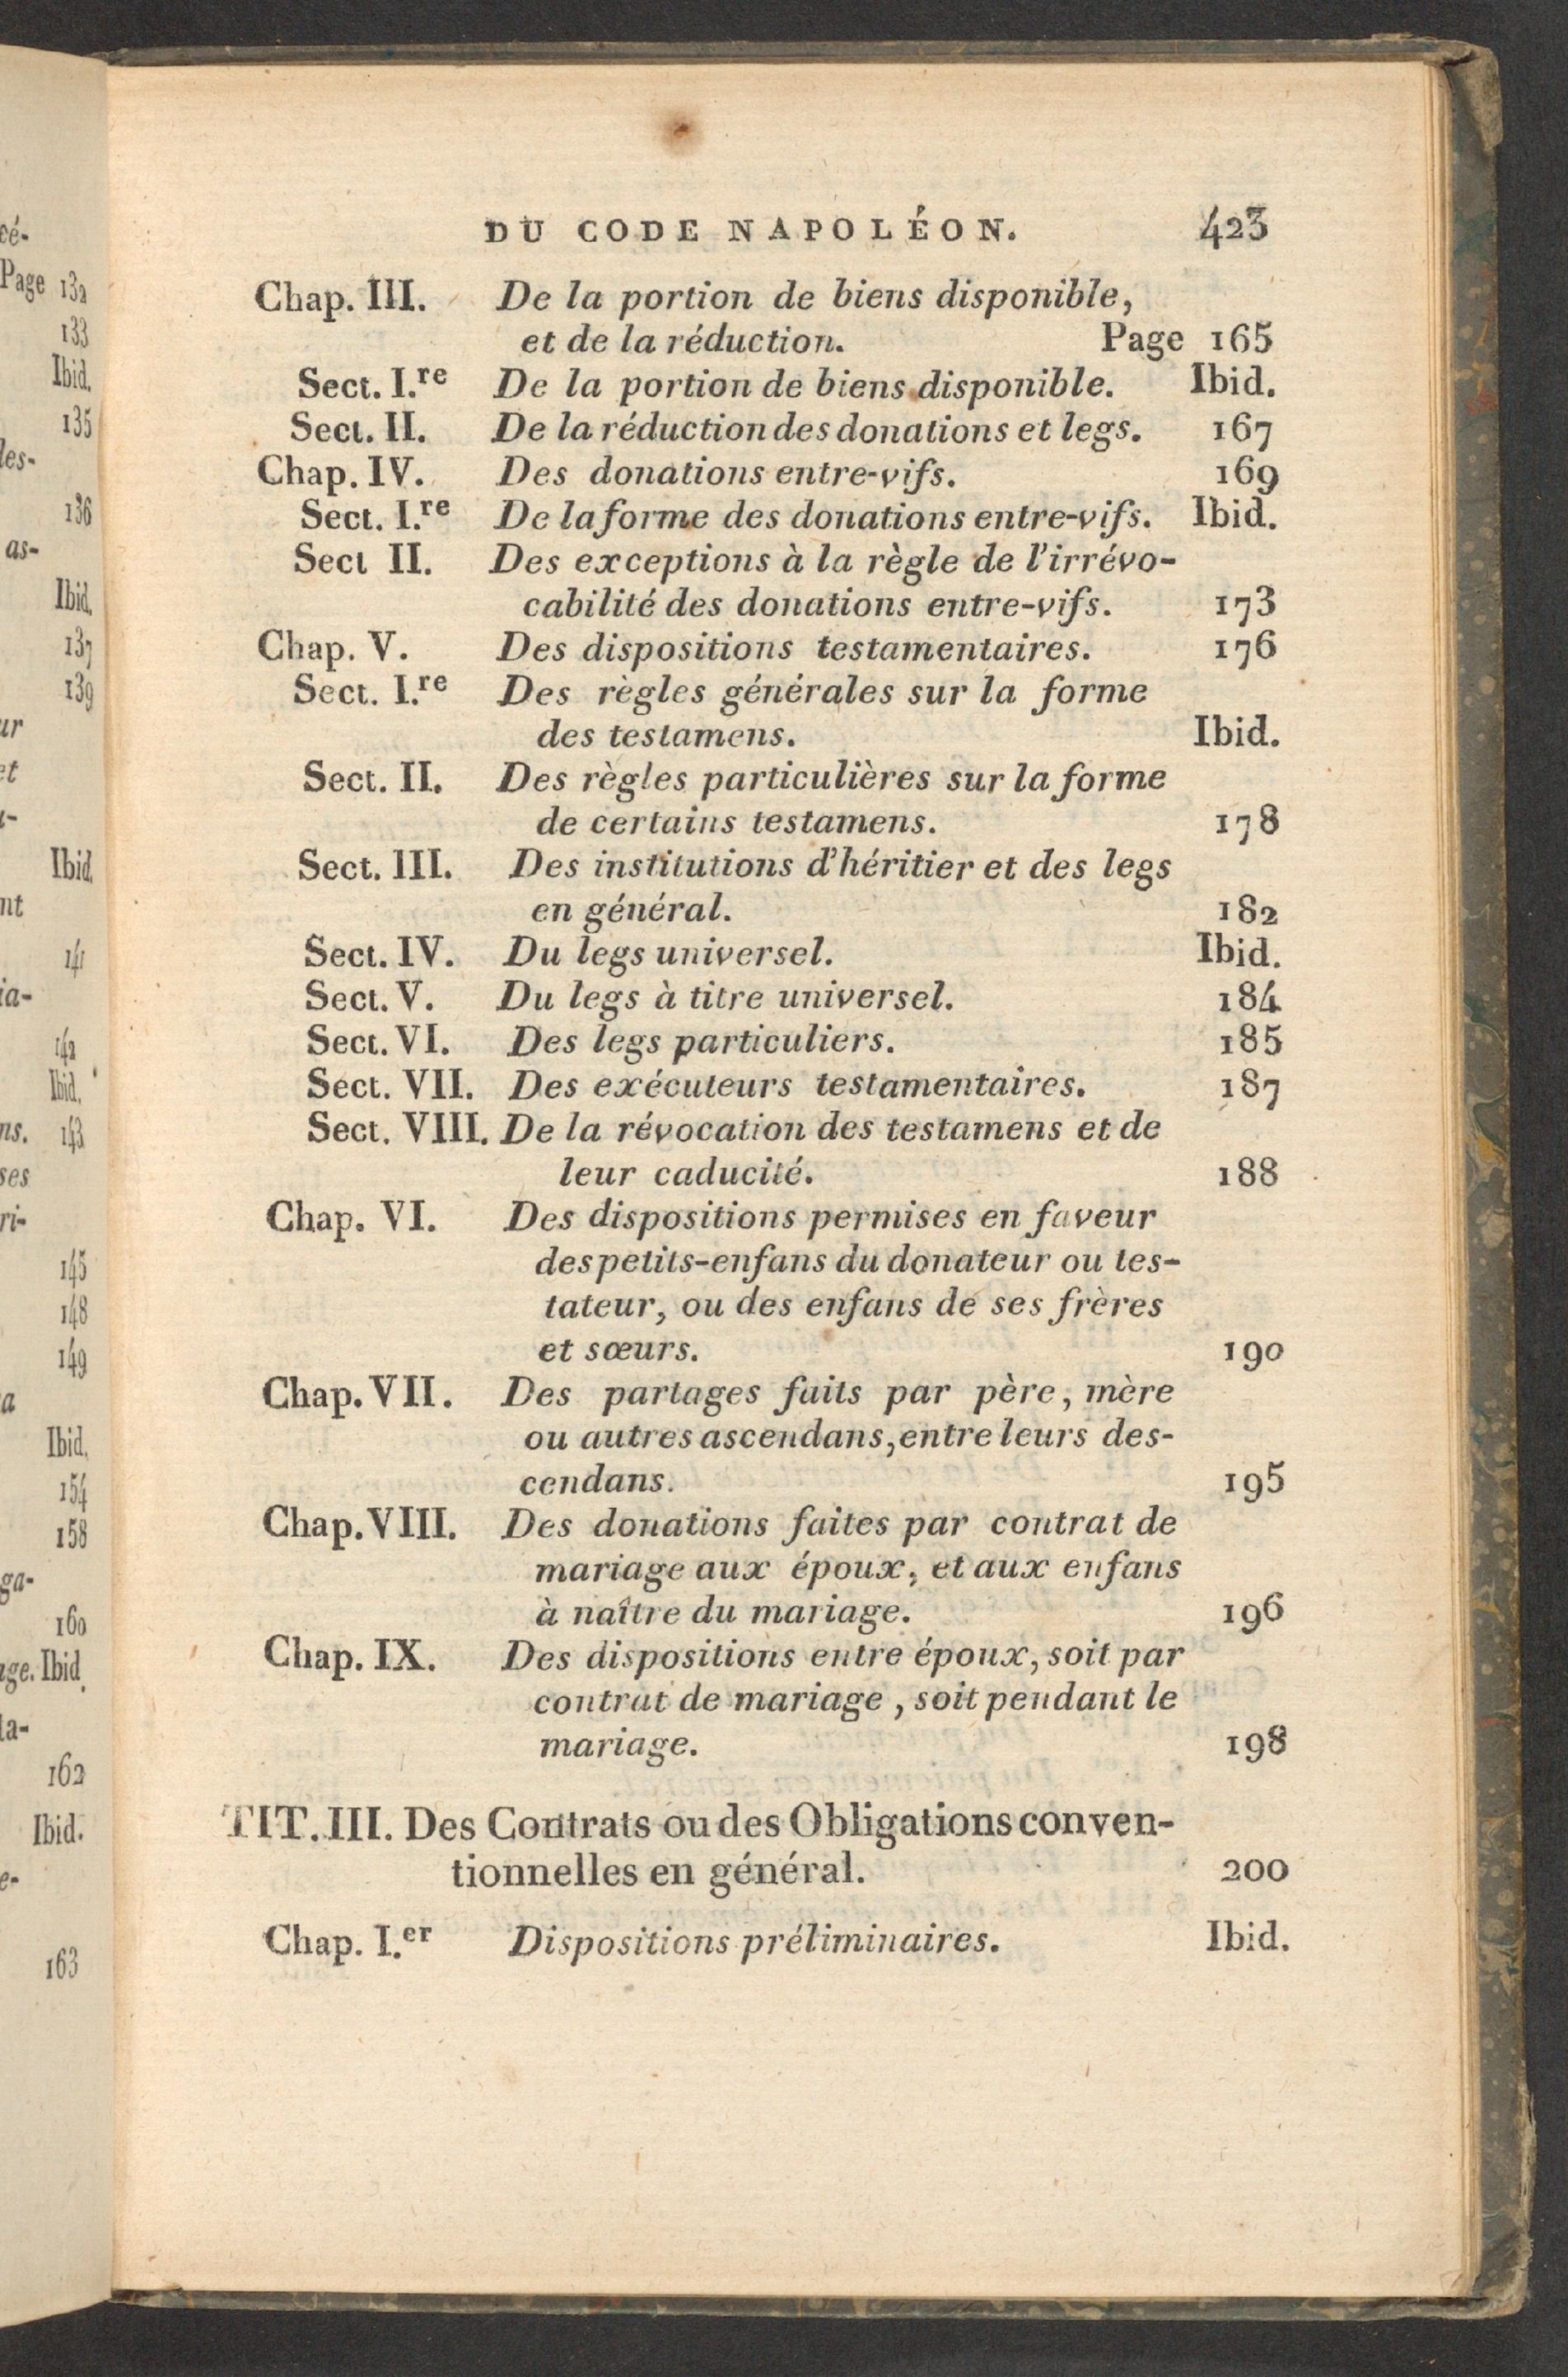 cé-
Page 132
133
Ibid.
135
les-
136
as-
Ibid.
137
139
ur
et
Ibid.
nt
141
ia-
142
Ibid.
ns. 143
ses
ri-
145
148
149
a
Ibid.
154
158
ga-
160
age. Ibid.
la-
162
Ibid.
e-
163
DU CODE NAPOLÉON. 423
Chap. III. De la portion de biens disponible,
et de la réduction. Page 165
Sect. I.re De la portion de biens disponible. Ibid.
Sect. II. De la réduction des donations et legs. 167
Chap. IV. Des donations entre-vifs. 169
Sect. I.re De la forme des donations entre-vifs. Ibid.
Sect II. Des exceptions à la règle de l'irrévo-
cabilité des donations entre-vifs. 173
Chap. V. Des dispositions testamentaires. 176
Sect. I.re Des règles générales sur la forme
des testamens. Ibid.
Sect. II. Des règles particulières sur la forme
de certains testamens. 178
Sect. III. Des institutions d'héritier et des legs
en général. 182
Sect. IV. Du legs universel. Ibid.
Sect. V. Du legs à titre universel. 184
Sect. VI. Des legs particuliers. 185
Sect. VII. Des exécuteurs testamentaires. 187
Sect. VIII. De la révocation des testamens et de
leur caducité. 188
Chap. VI. Des dispositions permises en faveur
des petits-enfans du donateur ou tes-
tateur, ou des enfans de ses frères
et sœurs. 190
Chap. VII. Des partages faits par père, mère
ou autres ascendans, entre leurs des-
cendans. 195
Chap. VIII. Des donations faites par contrat de
mariage aux époux, et aux enfans
à naître du mariage. 196
Chap. IX. Des dispositions entre époux, soit par
contrat de mariage, soit pendant le
mariage. 198
TIT. III. Des Contrats ou des Obligations conven-
tionnelles en général. 200
Chap. I.er Dispositions préliminaires. Ibid.